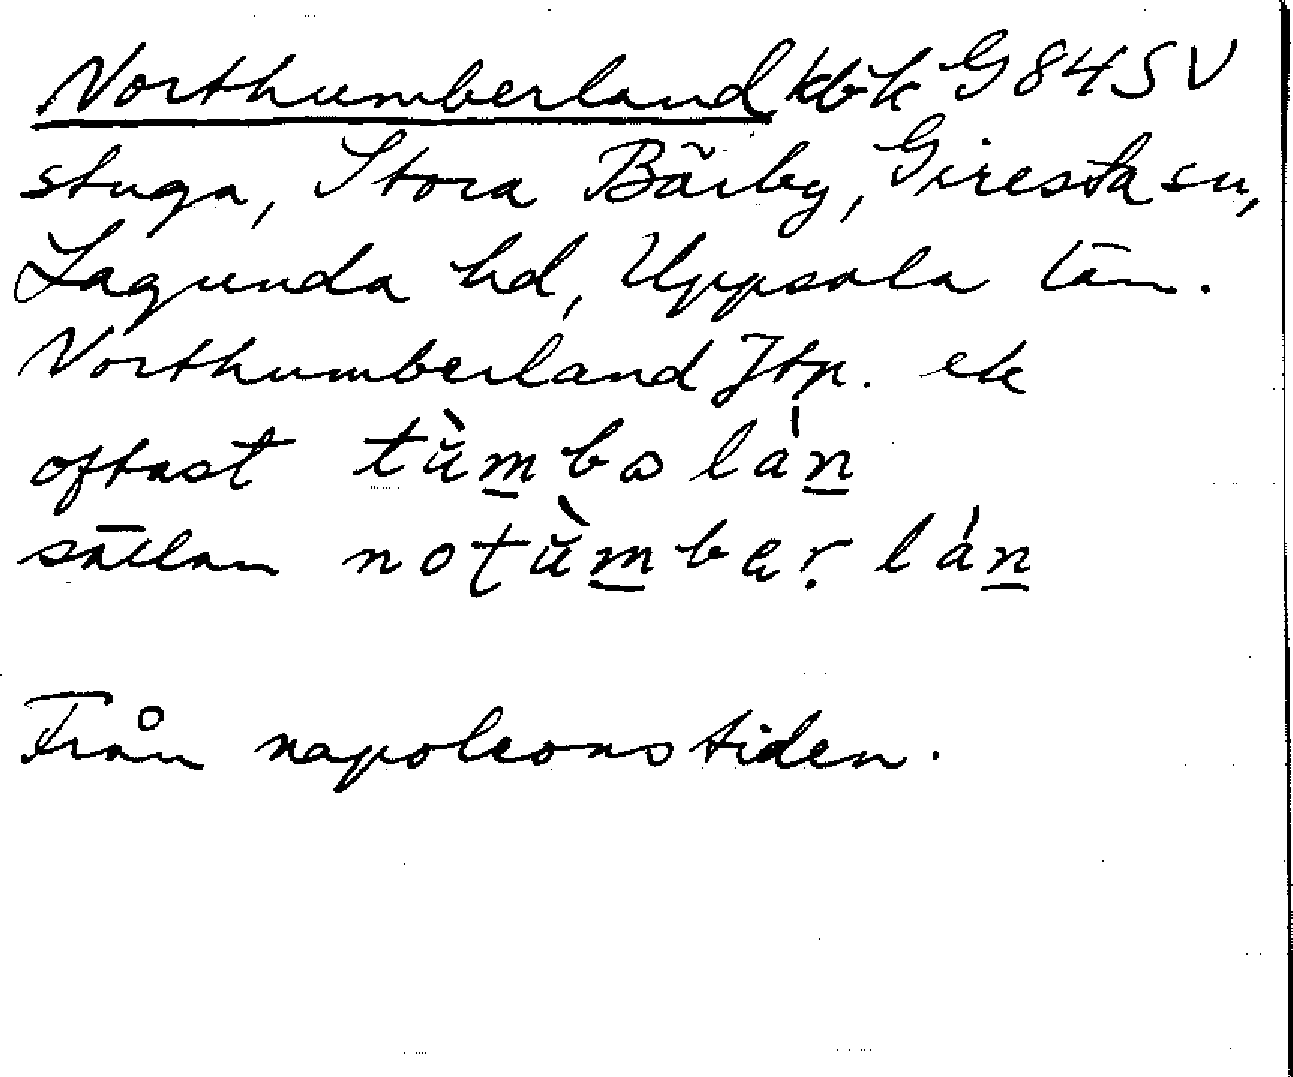 Northumberland kbk G 84 SV
stuga, Stora Bärby, Giresta sn,
Lagunda hd, Uppsala län.
Northumberland Jtp. ek
oftast tùmbəlán
sällan notùmbęrlán
Från napoleonstiden.